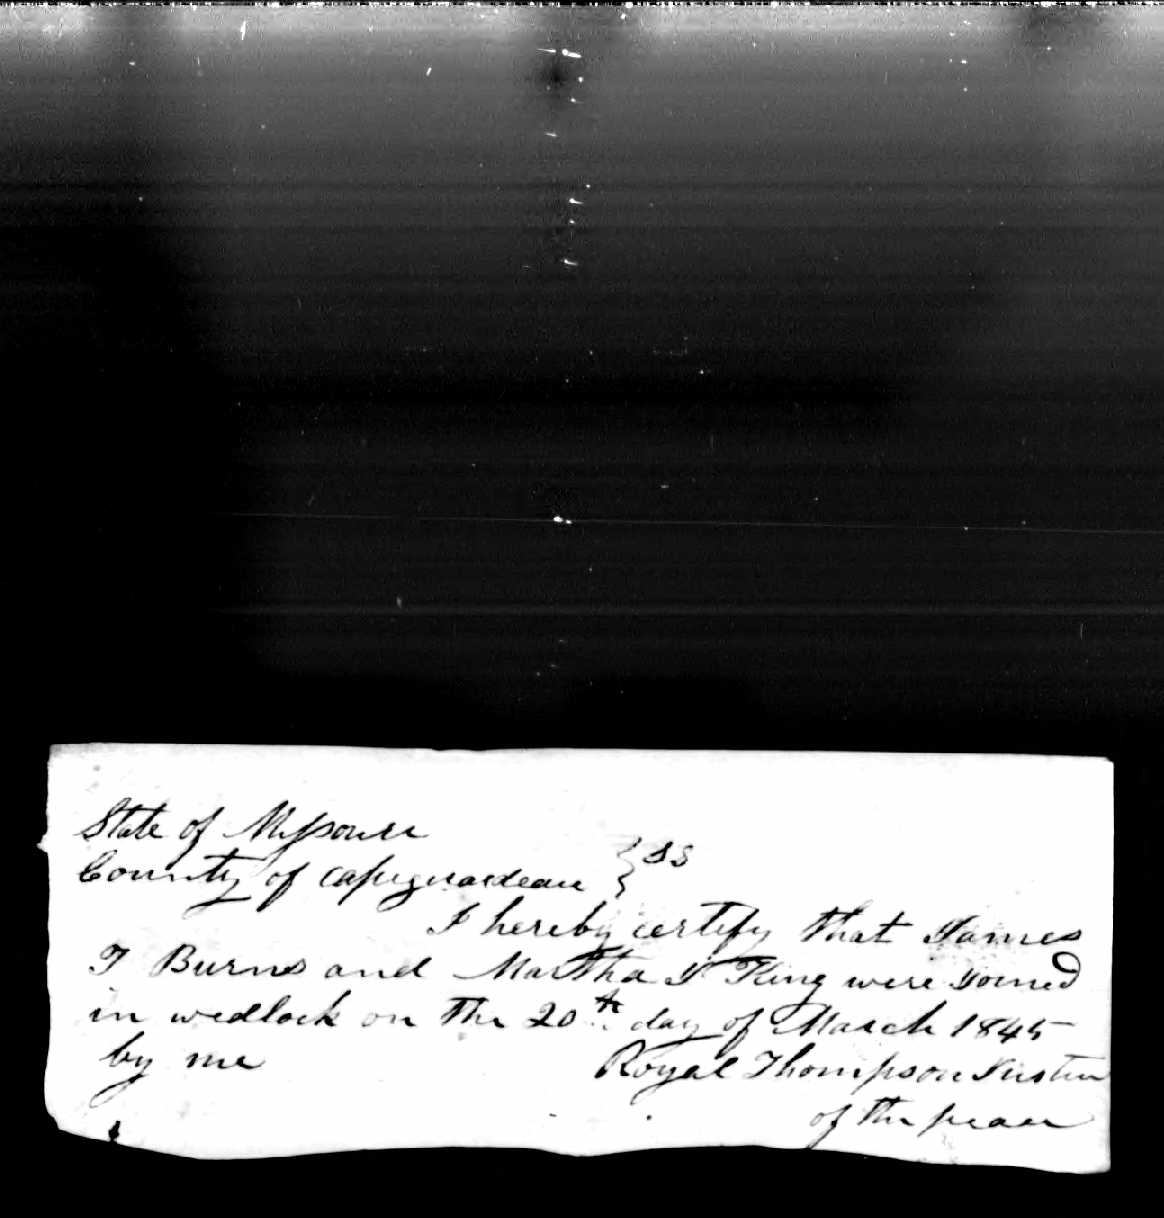 State of Missouri
County of Capegirardeau } SS
I hereby certify that James
T Burns and Martha J King were joined
in wedlock on the 20th day of March 1845
by me Royal Thompson Justice
of the peace